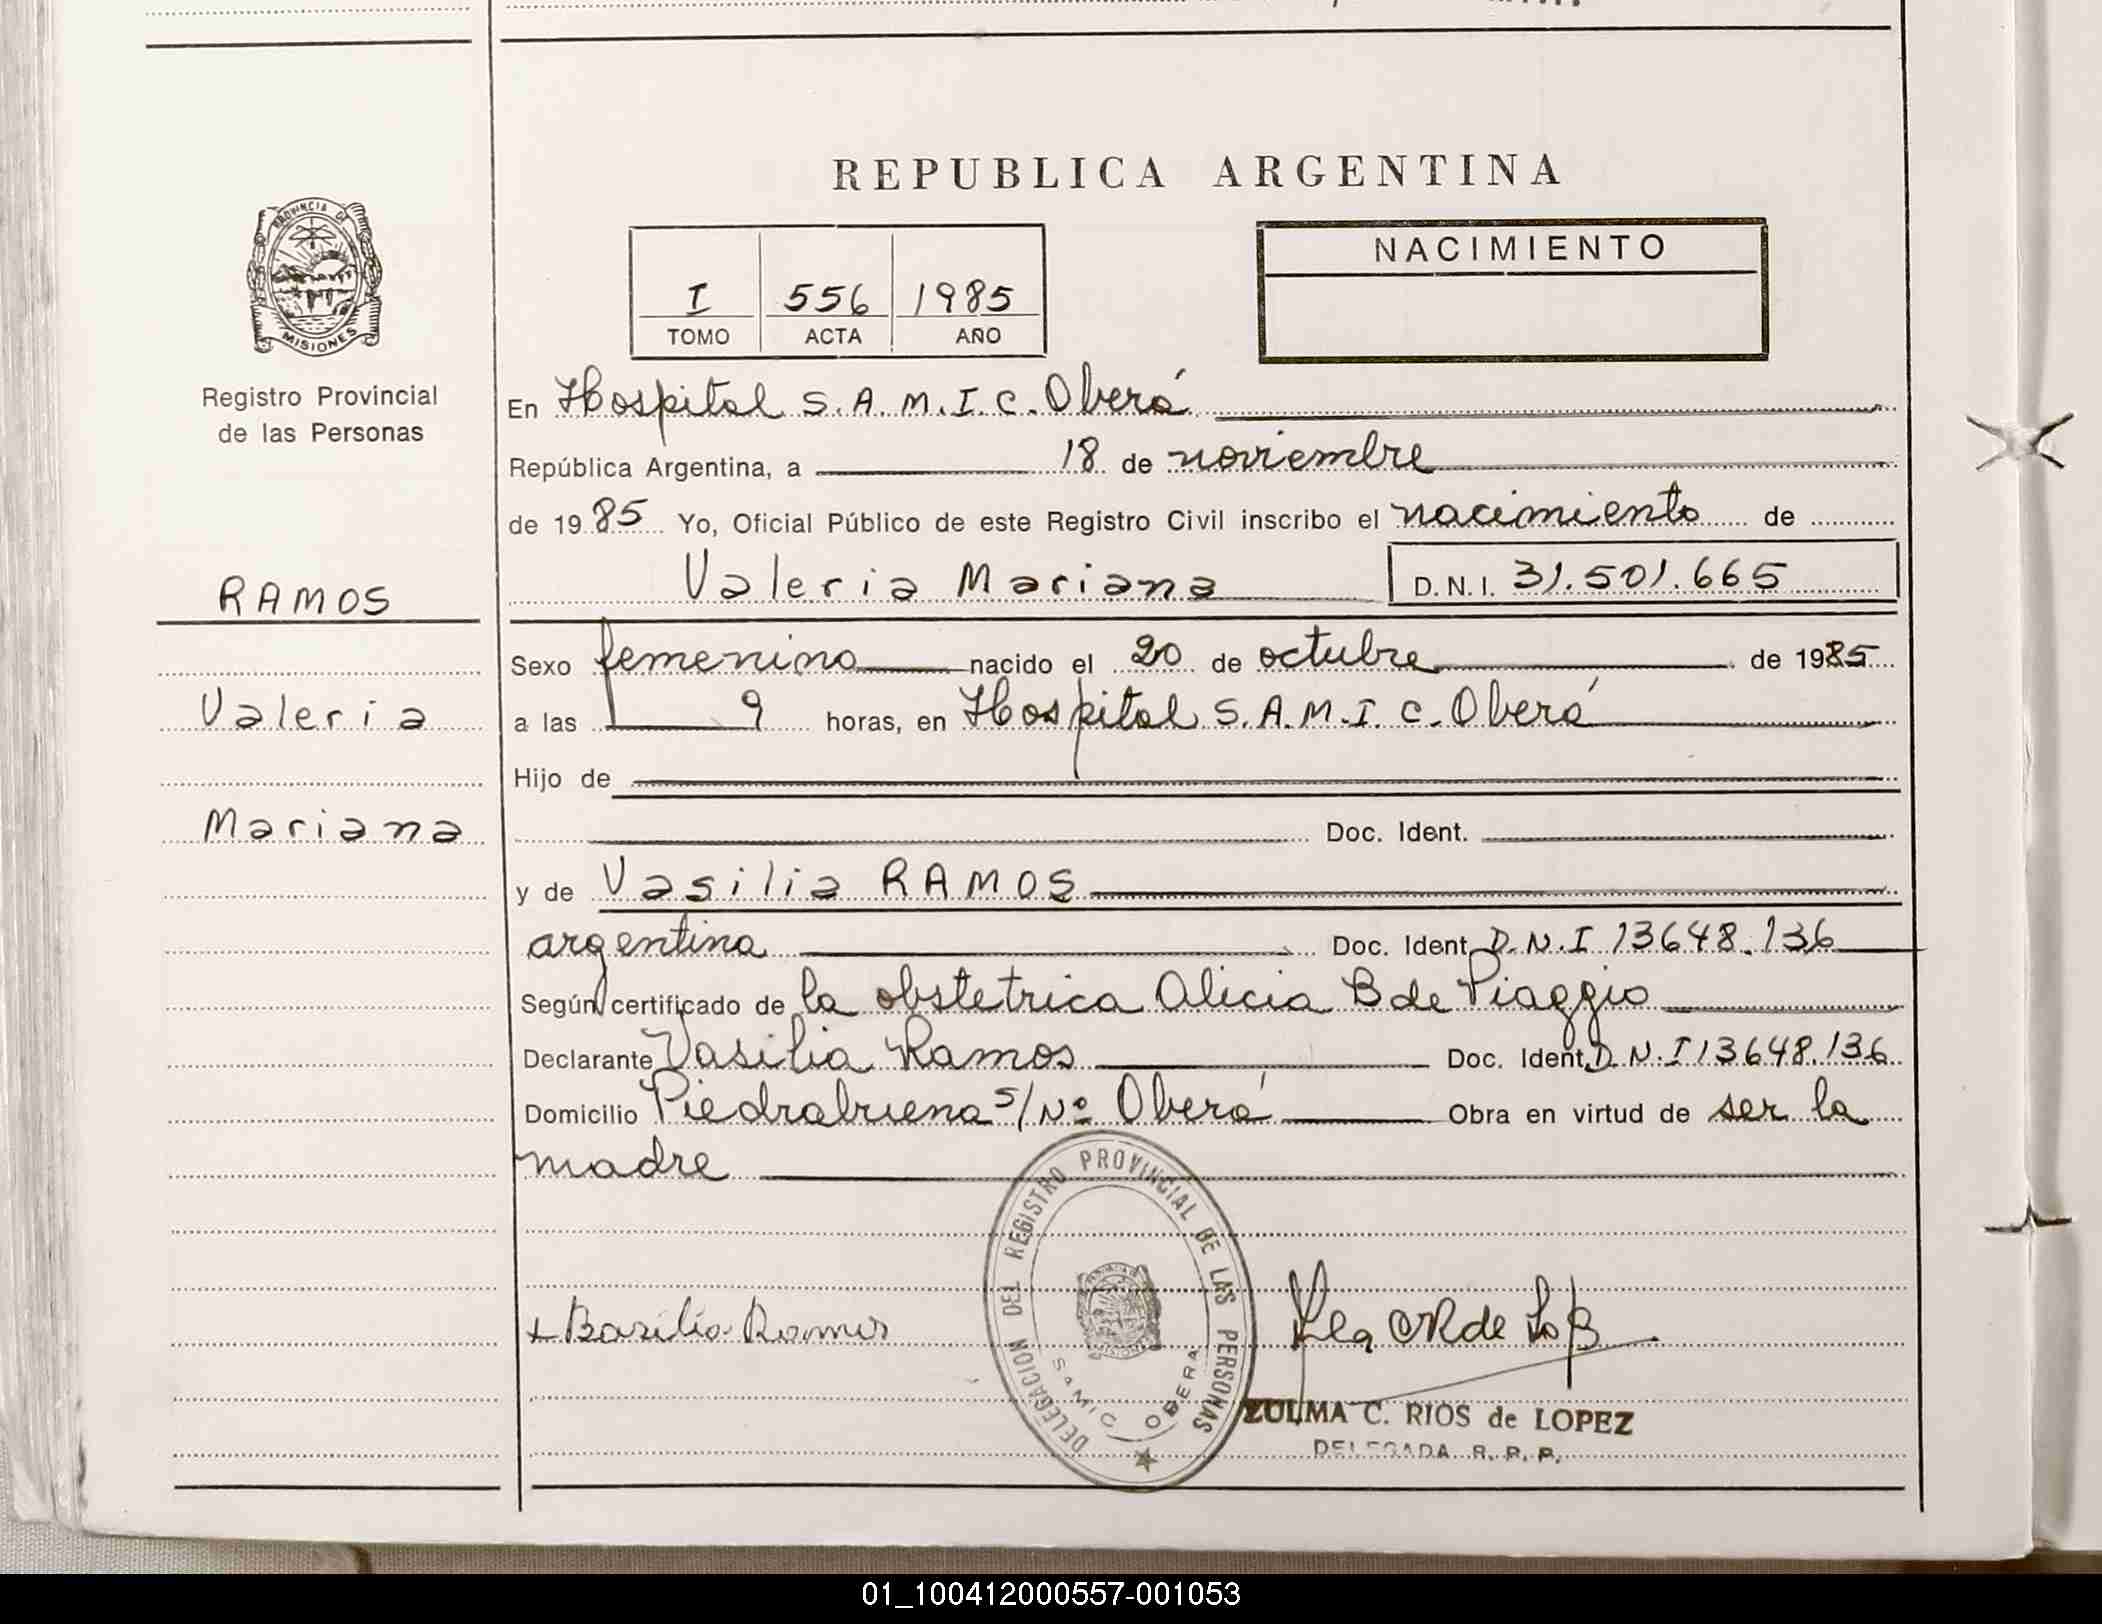 REPUBLICA ARGENTINA
PROVINCIA DE
MISIONES
Registro Provincial
de las Personas
I 556 1985
TOMO ACTA AÑO
NACIMIENTO
En Hospital S.A.M.I.C. Oberá
República Argentina, a 18 de noviembre
de 1985 Yo, Oficial Público de este Registro Civil inscribo el nacimiento de
Valeria Mariana D.N.I. 31.501.665
RAMOS
Valeria
Mariana
Sexo femenino nacido el 20 de octubre de 1985
a las 9 horas, en Hospital S.A.M.I.C. Oberá
Hijo de
Doc. Ident.
y de Vasilia RAMOS
argentina Doc. Ident. D.N.I 13648.136
Según certificado de la obstetrica Alicia B de Piaggio
Declarante Vasilia Ramos Doc. Ident. D.N.I 13648.136
Domicilio Piedrabuena s/Nº Oberá Obra en virtud de ser la
madre
DELEGACION DEL REGISTRO PROVINCIAL DE LAS PERSONAS
SAMIC OBERA
ZULMA C. RIOS de LOPEZ
DELEGADA R. P. P.
01_100412000557-001053